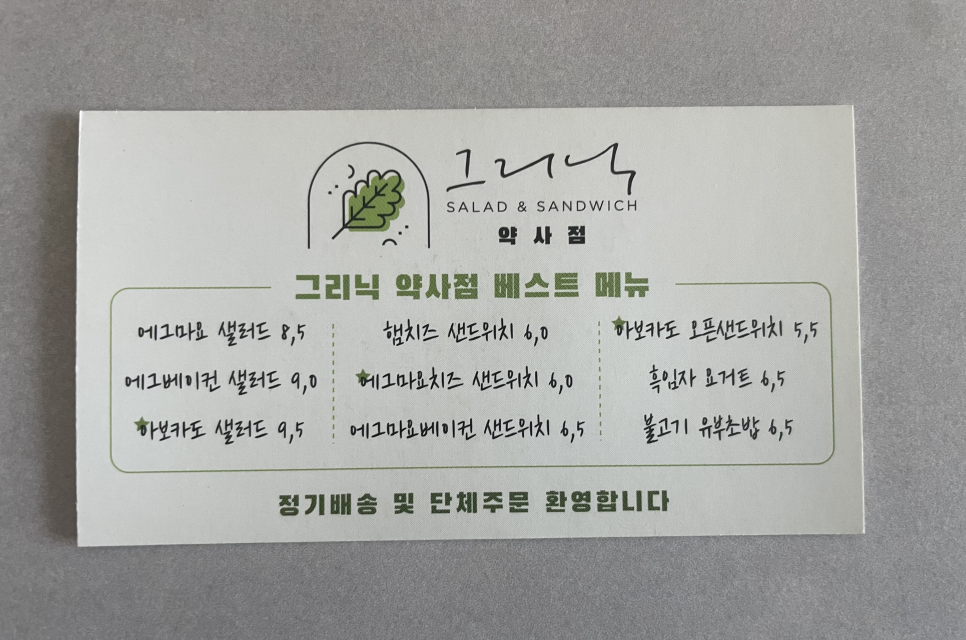 그리닉
SALAD & SANDWICH
약사점
그리닉 약사점 베스트 메뉴
에그마요 샐러드 8,5
에그베이컨 샐러드 9,0
아보카도 샐러드 9,5
햄치즈 샌드위치 6,0
에그마요치즈 샌드위치 6,0
에그마요베이컨 샌드위치 6,5
아보카도 오픈샌드위치 5,5
흑임자 요거트 6,5
불고기 유부초밥 6,5
정기배송 및 단체주문 환영합니다